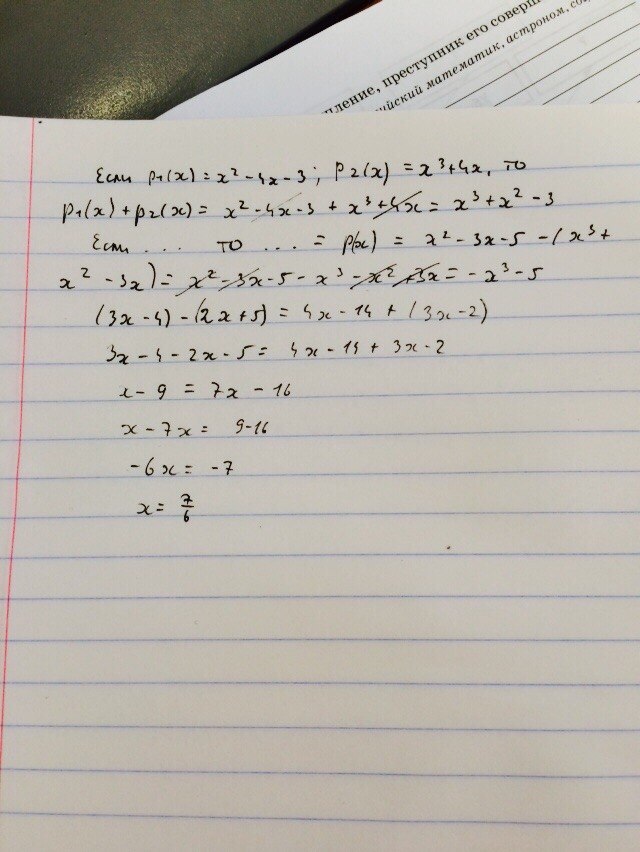 пление, преступник его соверш
ийский математик, астроном, со
Если p₁(x) = x² - 4x - 3; p₂(x) = x³ + 4x, то
p₁(x) + p₂(x) = x² - 4x - 3 + x³ + 4x = x³ + x² - 3
Если ... то ... = p(x) = x² - 3x - 5 - (x³ +
x² - 3x) = x² - 3x - 5 - x³ - x² + 3x = - x³ - 5
(3x - 4) - (2x + 5) = 4x - 14 + (3x - 2)
3x - 4 - 2x - 5 = 4x - 14 + 3x - 2
x - 9 = 7x - 16
x - 7x = 9 - 16
-6x = -7
x = 7/6